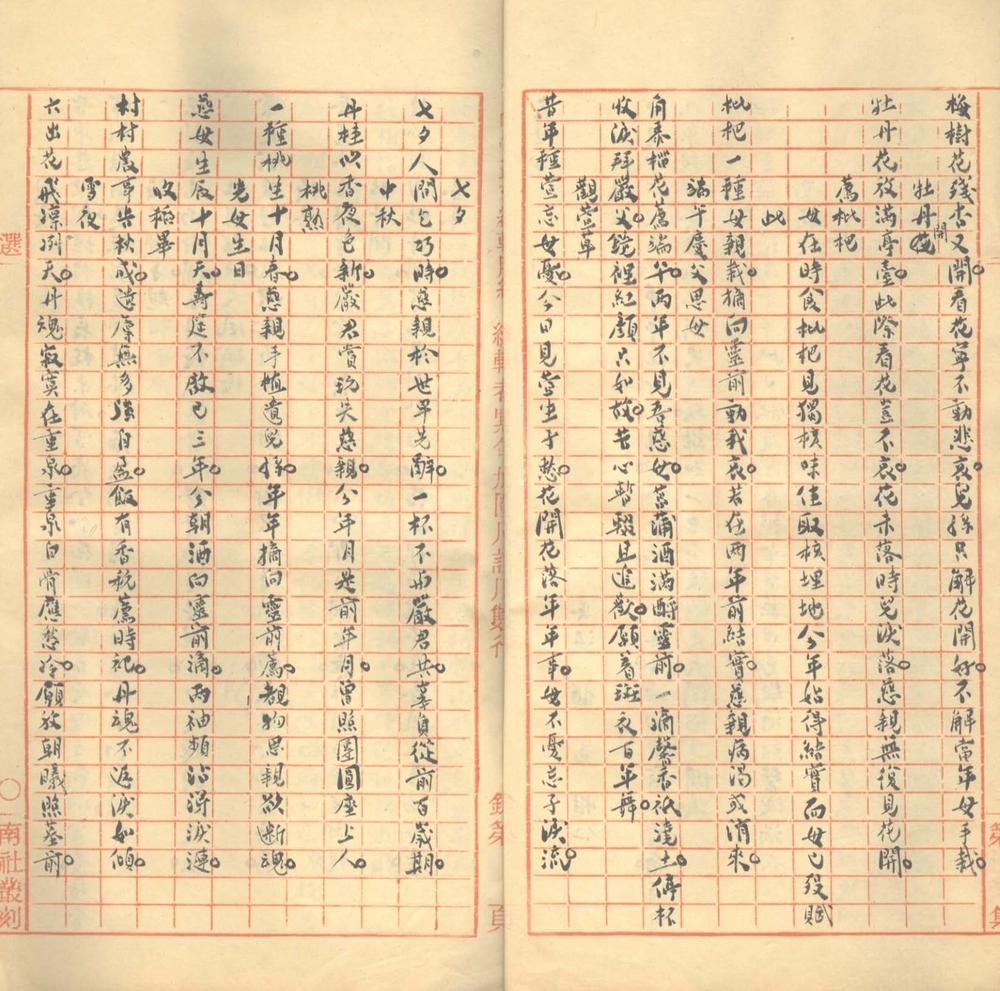 梅樹花殘杏又開看花寧不動悲哀兒孫只解花開好不解當年母手栽
牡丹開
牡丹花放滿亭臺此際看花豈不哀花未落時兒淚落慈親無復見花開
薦枇杷
母在時食枇杷見獨核味佳取核埋地今年始得結實而母已歿賦
此
枇杷一種母親栽摘向靈前動我哀若在兩年前結實慈親病渴或消來
端午慶父思母
角黍榴花薦端午兩年不見吾慈母菖蒲酒滿酹靈前一滴馨香祇澆土停杯
收淚拜嚴父鏡裡紅顏只如故苦心暫輟且追歡願着斑衣百年舞
觀萱草
昔年種萱忘母憂今日見萱生子愁花開花落年年事母不憂忘子淚流
七夕
七夕人間乞巧時慈親於世早先辭一杯不與嚴君共辜負從前百歲期
中秋
丹桂吹香夜已新嚴君賞玩失慈親今年月是前年月曾照團圓座上人
桃熟
一種桃生十月春慈親手植遺兒孫年年摘向靈前薦覩物思親欲斷魂
先母生日
慈母生辰十月天壽筵不啟已三年今朝酒向靈前滴兩袖頻沾淚漣
收稻畢
村村農事告秋成遺廩無多強自盈飯有香秔薦時祀丹魂不返淚如傾
雪夜
六出花飛凛冽天丹魂寂寞在重泉重泉白骨應愁冷願放朝曦照墓前
選
〇
南社叢刻
第
集
頁